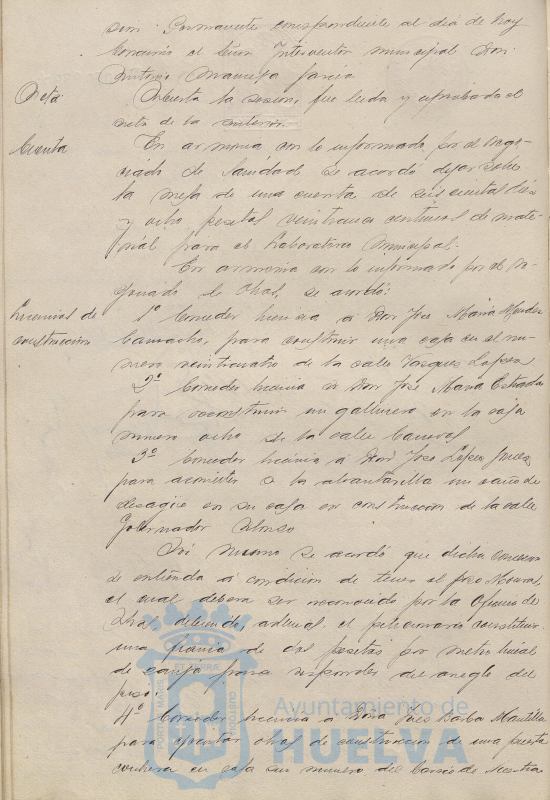 sión Permanente correspondiente al día de hoy
el Señor Interventor municipal Don
Antonio García
Acta
Abierta la sesión, fue leída y aprobada el
acta de la anterior.
Cuenta
En armonía con lo informado por el Nego-
ciado de Sanidad se acordó dejar sobre
la mesa de una cuenta de seiscientas diez
y ocho pesetas veinticinco céntimos de mate-
rial para el Laboratorio Municipal.
En armonía con lo informado por el Ne-
gociado de Obras, se acordó:
Licencias de
construcción
1º Conceder licencia a Don José María Mendez
Camacho, para construir una casa en el nu-
mero veinticuatro de la calle Vazquez Lopez
2º Conceder licencia a Don José María Estrada
para reconstruir un gallinero en la casa
numero ocho de la calle
3º Conceder licencia á Don José López
para acometer a la alcantarilla un caño de
desagüe en su casa en construcción de la calle
Gobernador Alonso
Así mismo se acordó que dicha
se entienda á condición de tener el pozo Mouras,
el cual deberá ser reconocido por la Oficina de
Obras, debiendo, además, el peticionario constituir
una fianza de dos pesetas por metro lineal
de zanja para responder del arreglo del
piso.
4º Conceder licencia a Doña Inés Barba Mantilla
para ejecutar obras de construcción de una puerta
cochera en casa sin numero del Barrio de Nuestra
PORTUS MARIS ET TERRAE CUSTODIA
Ayuntamiento de
HUELVA